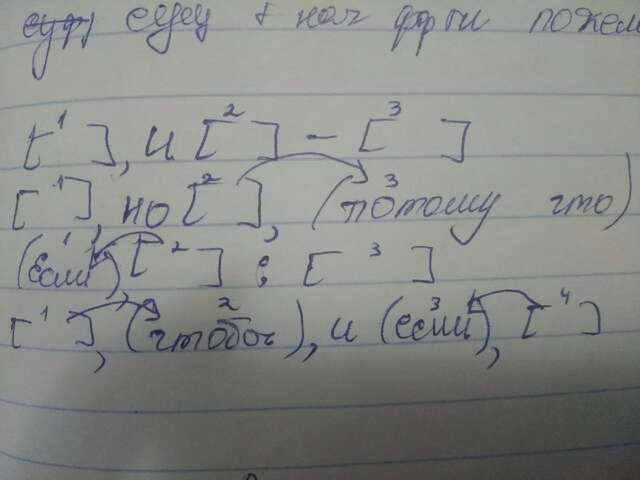 + нач
[1], и [2] - [3]
[1], но [2], (3 потому что)
(1 если), [2] : [3]
[1], (2 чтобы), и (3 если), [4]